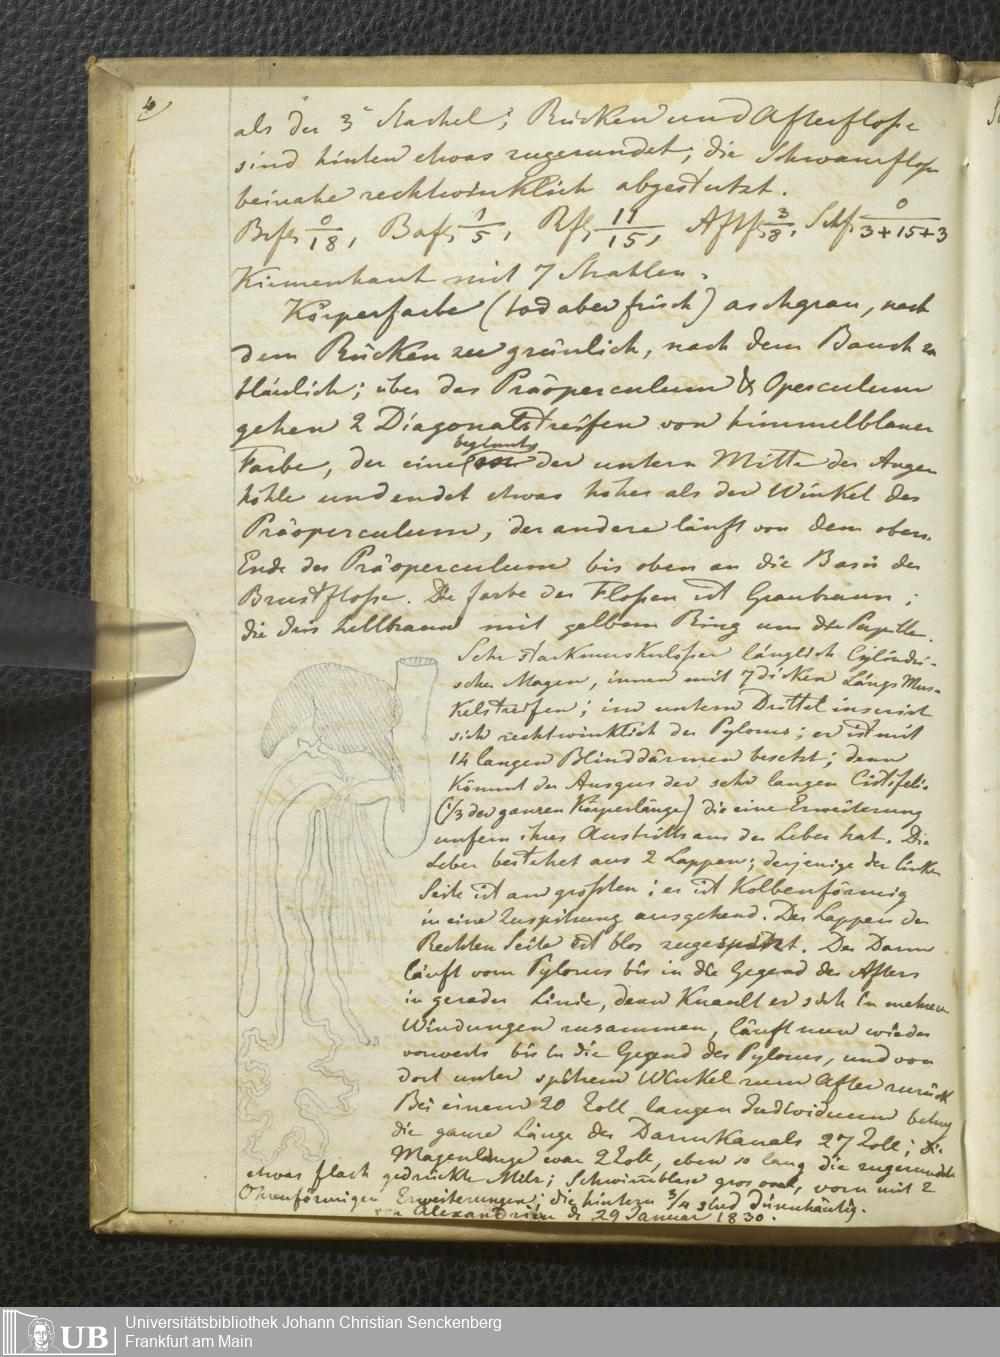 4
als der 3te Stachel; Rücken und Afterfloße
sind hinten etwas zugerundet; die Schwanzfloße
beinahe rechtwinklich abgestutzt.
Brfl. 0/18, Bafl. 1/5, Rfl. 11/15, Aftfl. 3/8, Schfl. 0/3+15+3
Kiemenhaut mit 7 Strahlen.
Körperfarbe (tod aber frisch) aschgrau, nach
dem Rücken zu grünlich, nach dem Bauch zu
bläulich; über das Präoperculum & Operculum
gehen 2 Diagonalstreifen von himmelblauer
Farbe, der eine beginnt der untern Mitte der Augen
höhle und endet etwas höher als der Winkel des
Präoperculum, der andere läuft von dem obern
Ende des Präoperculum bis oben an die Basis der
Brustfloße. Die Farbe der Floßen ist Graubraun;
die Iris hellbraun mit gelbem Ring um die Pupille.
Sehr starkmuskulöser länglich Cylindri-
scher Magen, innen mit 7 dicken Längs Mus-
kelstreifen; im untern Drittel inserirt
sich rechtwinklich der Pylorus; er ist mit
14 langen Blinddärmen besetzt; dann
kömmt der Ausgus der sehr langen Cistifelis
(1/3 der ganzen Körperlänge) die eine Erweiterung
unfern ihres Austritts aus der Leber hat. Die
Leber bestehet aus 2 Lappen; derjenige der linken
Seite ist am größten; er ist Kolbenförmig
in eine Zuspitzung ausgehend. Der Lappen der
Rechten Seite ist blos zugespitzt. Der Darm
läuft vom Pylorus bis in die Gegend des Afters
in gerader Linie, dann Knault er sich in mehren
Windungen zusammen, läuft nun wieder
vorwerts bis in die Gegend des Pylorus, und von
dort unter spitzem Winkel zum After zurück
Bei einem 20 Zoll langen Individuum betrug
die ganze Länge des Darmkanals 27 Zoll; die
Magenlänge war 2 Zoll, eben so lang die zugerundete
etwas flach gedrückte Milz; Schwimblase gros oval, vorn mit 2
Ohrenförmigen Erweiterungen; die hintern 3/4 sind dünnhäutig.
von Alexandrien d. 29 Januar 1830.
UB
Universitätsbibliothek Johann Christian Senckenberg
Frankfurt am Main